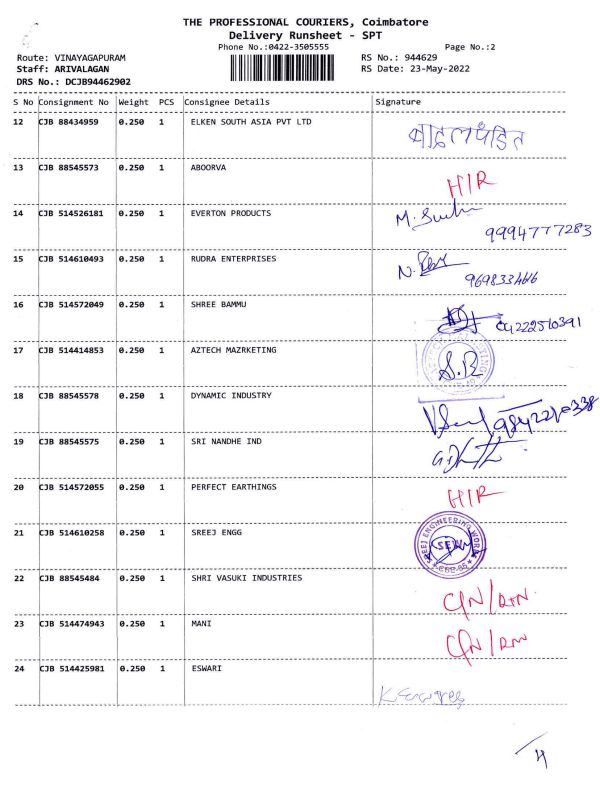 THE PROFESSIONAL COURIERS, Coimbatore
Delivery Runsheet - SPT
Phone No.:0422-3505555 Page No.:2
Route: VINAYAGAPURAM RS No.: 944629
Staff: ARIVALAGAN RS Date: 23-May-2022
DRS No.: DCJB94462902
S No Consignment No Weight PCS Consignee Details Signature
12 CJB 88434959 0.250 1 ELKEN SOUTH ASIA PVT LTD
13 CJB 88545573 0.250 1 ABOORVA HIR
14 CJB 514526181 0.250 1 EVERTON PRODUCTS
9994777283
15 CJB 514610493 0.250 1 RUDRA ENTERPRISES
16 CJB 514572049 0.250 1 SHREE BAMMU
17 CJB 514414853 0.250 1 AZTECH MAZRKETING S.R
18 CJB 88545578 0.250 1 DYNAMIC INDUSTRY
19 CJB 88545575 0.250 1 SRI NANDHE IND
20 CJB 514572055 0.250 1 PERFECT EARTHINGS HIR
21 CJB 514610258 0.250 1 SREEJ ENGG SREEJ ENGINEERING WORKS SEW
22 CJB 88545484 0.250 1 SHRI VASUKI INDUSTRIES
23 CJB 514474943 0.250 1 MANI
24 CJB 514425981 0.250 1 ESWARI